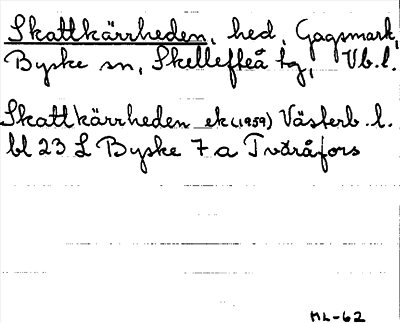 Skattkärrheden, hed, Gagsmark,
Byske sn, Skellefteå tg, Vb.l.
Skattkärrheden ek (1959) Västerb. l.
bl 23 L Byske 7 a Tväråfors
ML-62